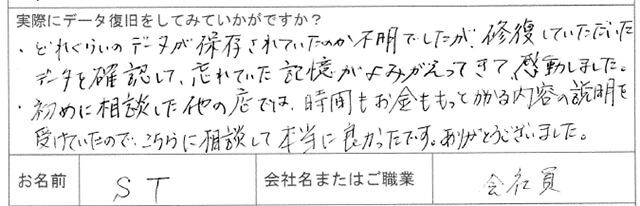 実際にデータ復旧をしてみていかがですか？
・どれぐらいのデータが保存されていたのか不明でしたが、修復していただいた
データを確認して、忘れていた記憶がよみがえってきて、感動しました。
・初めに相談した他の店では、時間もお金ももっとかかる内容の説明を
受けていたので、こちらに相談して本当に良かったです。ありがとうございました。
お名前 ST 会社名またはご職業 会社員